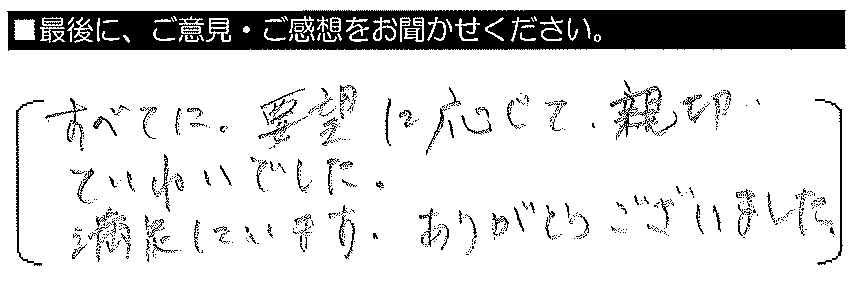 ■最後に、ご意見・ご感想をお聞かせください。
すべてに。要望に応じて、親切・
ていねいでした。
満足しています。ありがとうございました。